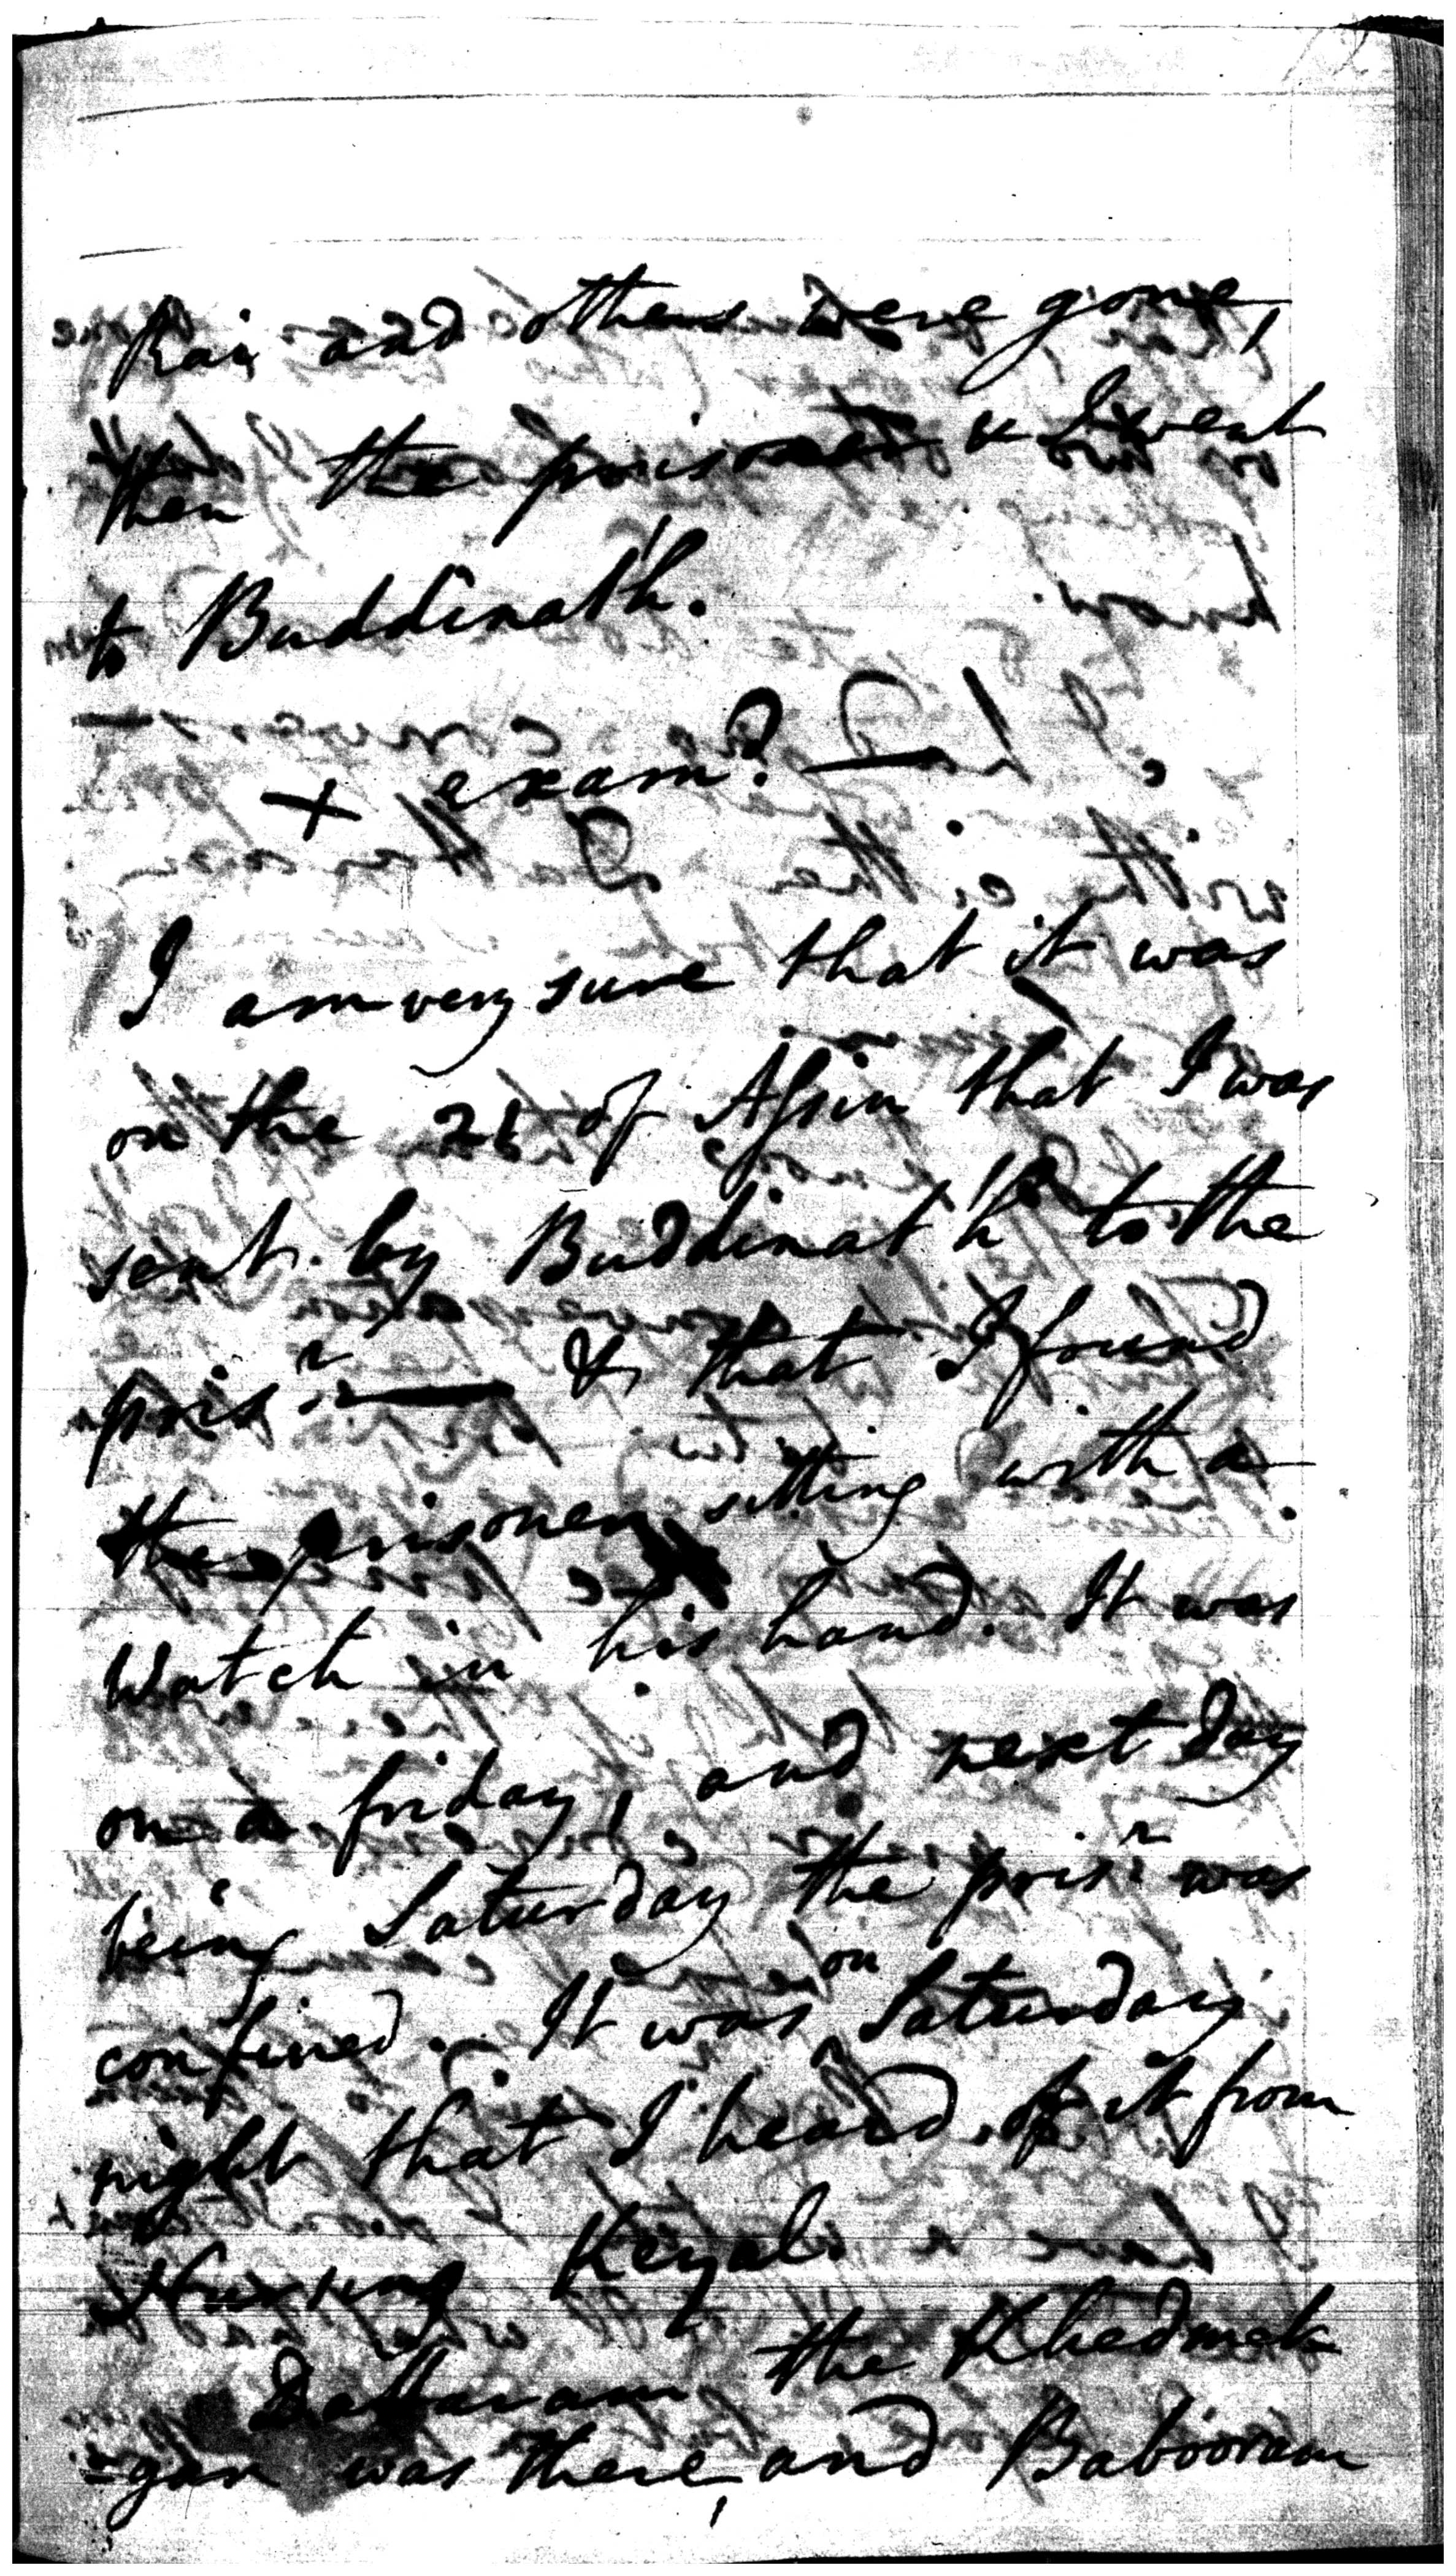 Rai and others were gone,
then the prisoner & I went
to Buddinath.
+ exam.d —
I am very sure that it was
on the 21 of Assin that I was
sent by Buddinath to the
pris.r — & that I found
the prisoner sitting with a
Watch in his hand. It was
on a friday, and next day
being Saturday the pris.r was
confined. It was on Saturday
night that I heard of it from
Nursing Keyal.
Dattaram the Khedmet
-gar was there, and Babooram